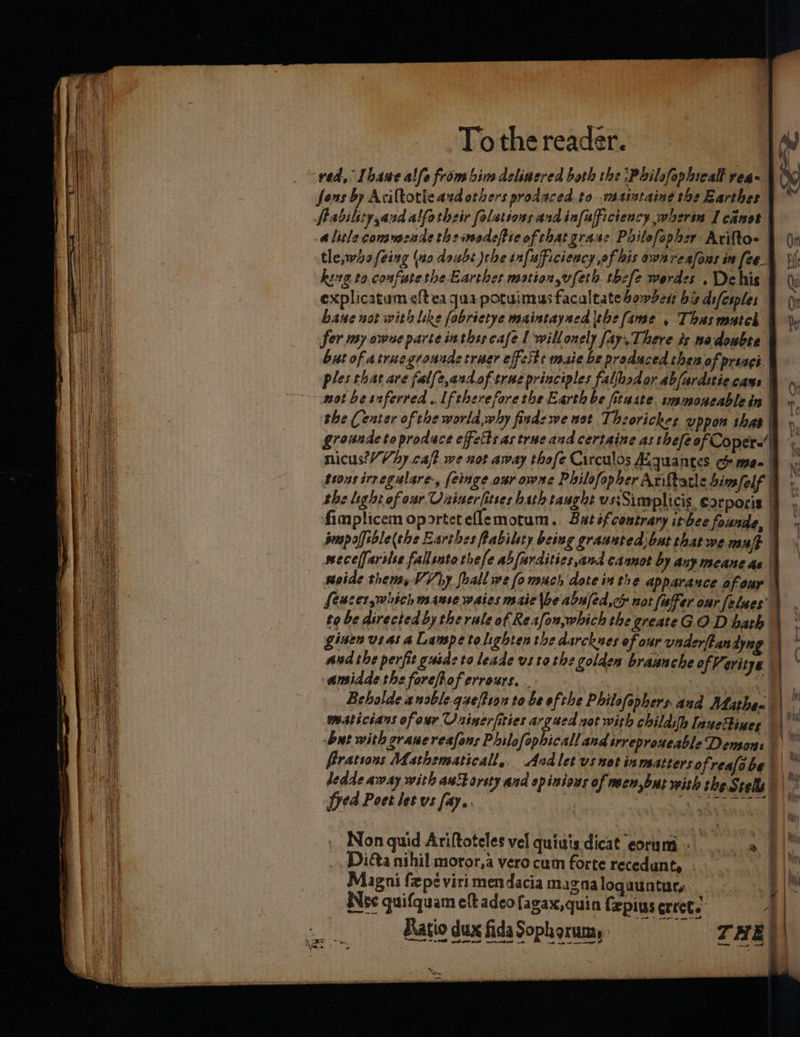 To the reader.
red, I haue alſo from him deliuered both the Philoſophicall rea-
ſons by Ariſtotle and others produced to maintaine the Earthes
ſtability, and alſo their ſolutions and inſufficiency, wherin I cānot
a litle commende the modeſtie of that graue Philoſopher Ariſto-
tle, who ſeing (no doubt) the inſufficiency of his owne reaſons in ſee-
king to confute the Earthes motion, vſeth theſe wordes . De his
explicatum eſt ea qua potuimus facultate howbeit his diſciples
haue not with like ſobrietye maintayned the ſame . Thus mutch
for my owne parte in this caſe I will onely ſay. There is no doubte
but of a true grounde truer effects maie be produced then of princi
ples that are falſe, and of true principles falſhod or abſurditie can
not be inferred . If therefore the Earth be ſituate immoueable in
the Center of the world, why finde we not Theorickes vppon that
grounde to produce effects as true and certaine as theſe of Coper-
nicus? VVhy caſt we not away thoſe Circulos Æquantes & mo-
tions irregulare, ſeinge our owne Philoſopher Ariſtotle himſelf
the light of our Vniuerſities hath taught vs: Simplicis corporis
ſimplicem oportet eſſe motum. But if contrary it bee founde,
impoſſible (the Earthes ſtability being graunted) but that we muſt
neceſſarilie fall into theſe abſurdities, and cannot by any meane a-
uoide them, VVhy ſhall we ſo much dote in the apparance of our
ſences, which manie waies maie be abuſed, & not ſuffer our ſelues
to be directed by the rule of Reaſon, which the greate GOD hath
giuen vs as a Lampe to lighten the darcknes of our vnderſtandyng
and the perfit guide to leade vs to the golden braunche of Veritye
amidde the foreſt of errours.
Beholde a noble queſtion to be of the Philoſophers and Mathe-
maticians of our Vniuerſities argued not with childiſh Inuectiues
but with graue reaſons Philoſophicall and irreproueable Demon-
ſtrations Mathematicall. And let vs not in matters of reaſō be
ledde away with auctority and opinions of men, but with the Stelli
fyed Poet let vs ſay.
Non quid Ariſtoteles vel quiuis dicat eorum
Dicta nihil moror, à vero cum forte recedunt,
Magni ſæpè viri mendacia magna loquuntur,
Nec quiſquam eſt adeo ſagax, quin ſæpius erret.
Ratio dux fida Sophorum, THE